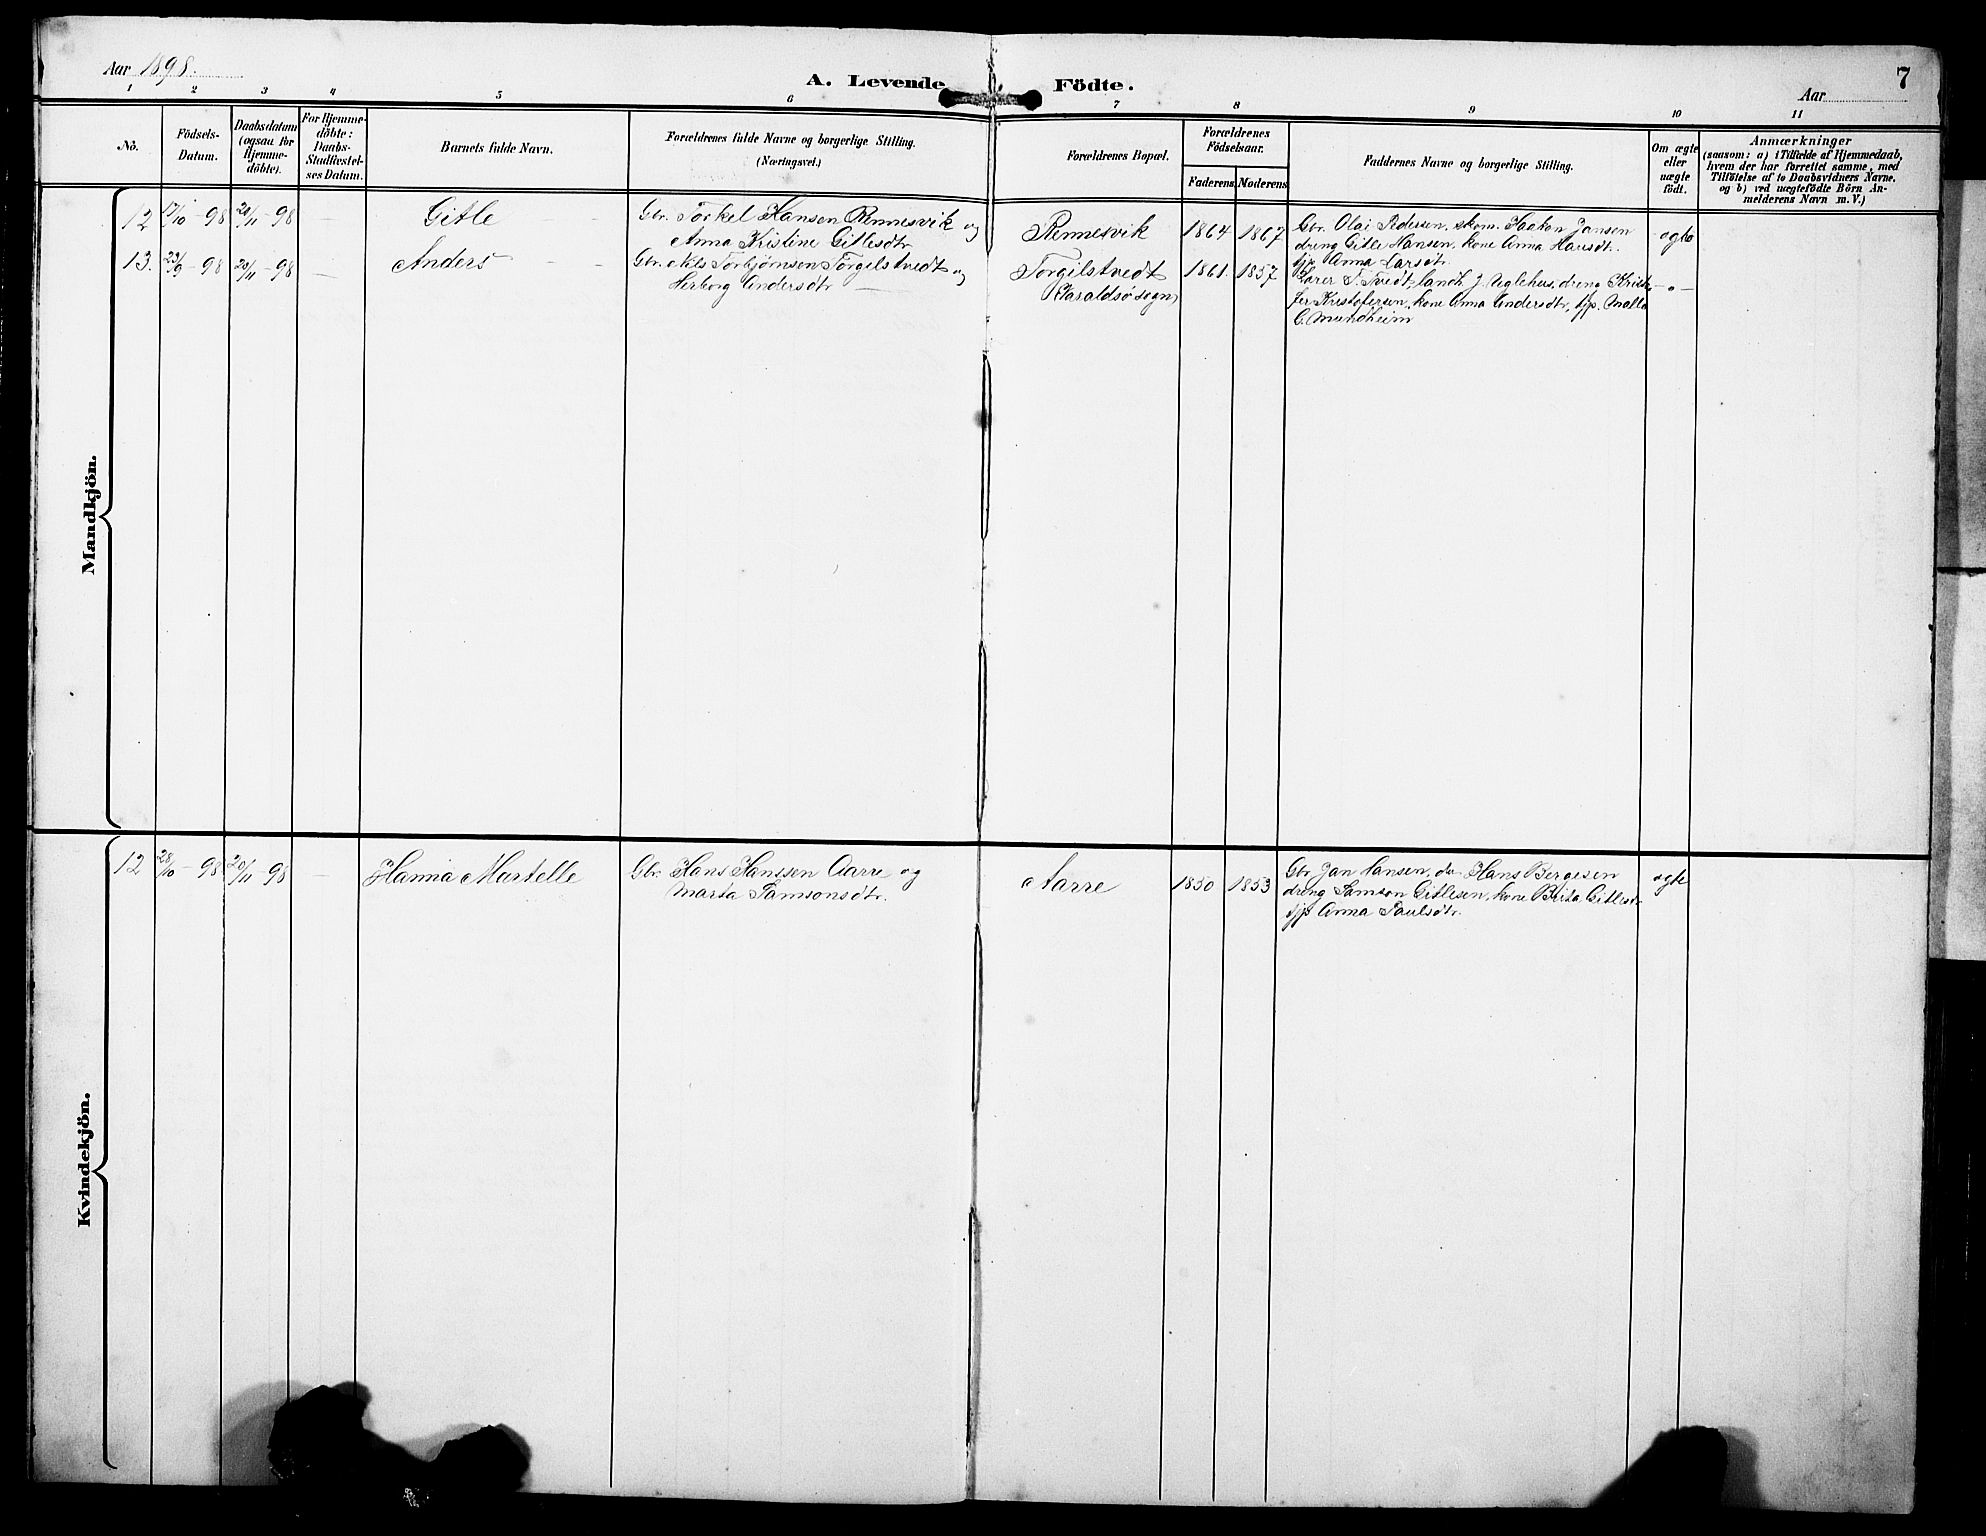 Aar 1898.
A. Levende Födte.
7
Aar
1 2 3 4 5 6 7 8 9 10 11
No.
Födsels-
Datum.
Daabsdatum
(ogsaa for
Hjemme-
döbte).
For Hjemme-
döbte:
Daabs-
Stadfæstel-
ses Datum.
Barnets fulde Navn.
Forældrenes fulde Navne og borgerlige Stilling.
(Næringsvei.)
Forældrenes Bopæl.
Forældrenes
Födselsaar.
Faderens. Moderens.
Faddernes Navne og borgerlige Stilling.
Om ægte
eller
uægte
födt.
Anmærkninger
(saasom: a) i Tilfælde af Hjemmedaab,
hvem der har forrettet samme, med
Tilföielse af to Daabsvidners Navne.
og b) ved uægtefödte Börn An-
melderens Navn m. V.)
Mandkjön.
12 17/10-98 20/11-98 — Gitle — — Gbr. Torkel Hansen Rennesvik og
Anna Kristine Gitlesdtr.
Rennesvik 1864 1867 Gbr. Olai Pedersen, skom. Haakon Jansen
dreng Gitle Hansen, kone Anna Hansdtr.
tjp. Anna Larsdtr.
ægte
13. 23/9-98 20/11-98 — Anders — — Gbr. Nils Torbjörnsen Torgilstvedt og
Herborg Andersdtr. —
Torgilstvedt 1861. 1857
Lærer T. Tvedt, landh. J. Uglehus, dreng Krist-
fer Kristofersen, kone Anna Andersdtr, tjp. Malla
C. Mundheim
— " —
Kvindekjön.
12 28/10-98 20/11-98 — Hanna Martelle Gbr. Hans Hanssen Aarre og
Marta Samsonsdtr.
Aarre 1850 1853 Gbr Jan Hansen, do Hans Bergesen
dreng Samson Gitlesen, kone Brita Gitlesdtr
tjp Anna Paulsdtr.
ægte